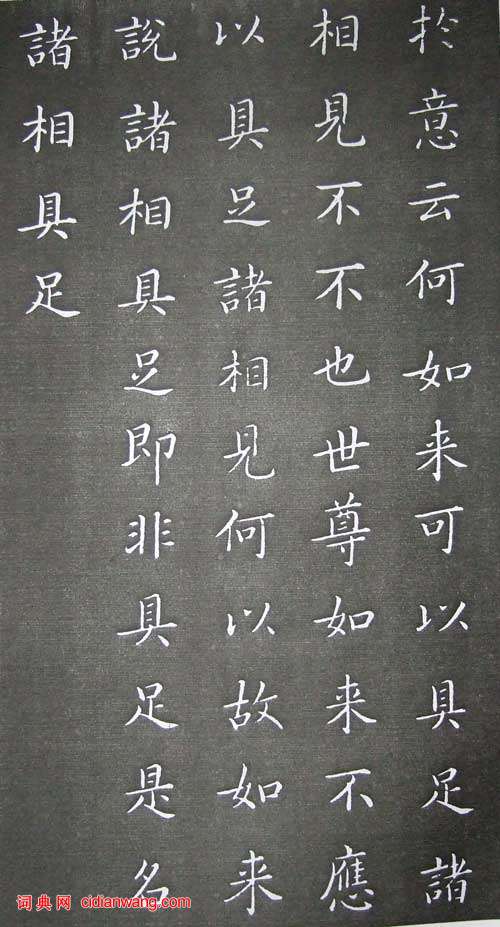 於意云何如来可以具足諸
相見不不也世尊如来不應
以具足諸相見何以故如来
說諸相具足即非具足是名
諸相具足
词典网 cidianwang.com